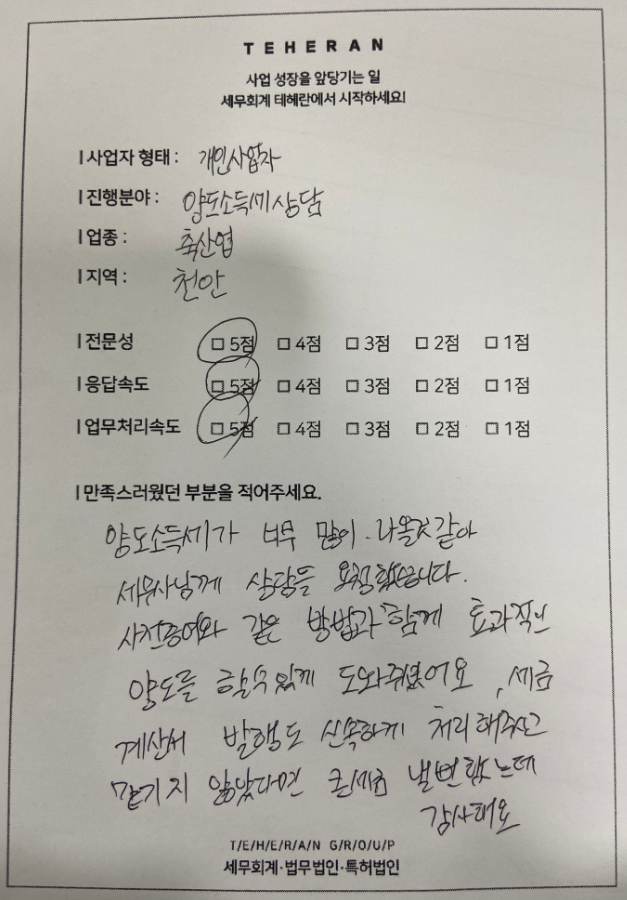 TEHERAN
사업 성장을 앞당기는 일
세무회계 테헤란에서 시작하세요!
사업자 형태 : 개인사업자
진행분야 : 양도소득세 상담
업종 : 축산업
지역 : 천안
전문성 5점 4점 3점 2점 1점
응답속도 5점 4점 3점 2점 1점
업무처리속도 5점 4점 3점 2점 1점
만족스러웠던 부분을 적어주세요.
양도소득세가 너무 많이 나올것 같아
세무사님께 상담을 요청했습니다.
사전증여와 같은 방법과 함께 효과적인
양도를 할수 있게 도와주셨어요, 세금
계산서 발행도 신속하게 처리해주시고
맡기지 않았다면 큰세금 낼뻔 했는데
감사해요
T/E/H/E/R/A/N G/R/O/U/P
세무회계·법무법인·특허법인